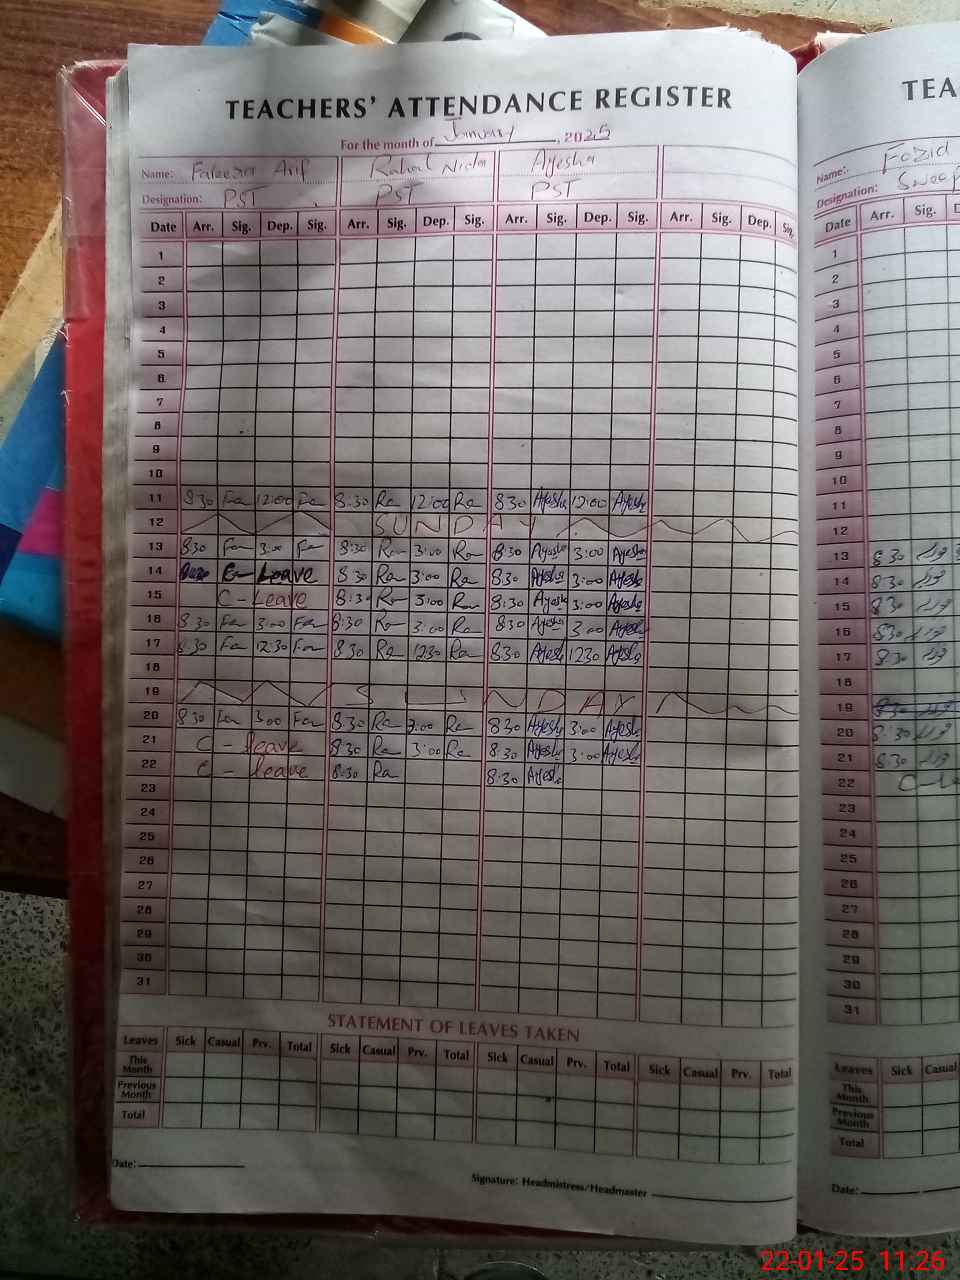 TEACHERS' ATTENDANCE REGISTER
For the month of January, 2025
Name: Faleeza Arif Rahat Nida Ayesha
Designation: PST PST PST
Date Arr. Sig. Dep. Sig. Arr. Sig. Dep. Sig. Arr. Sig. Dep. Sig. Arr. Sig. Dep. Sig.
1
2
3
4
5
6
7
8
9
10
11 8:30 Fa 12:00 Fa 8:30 Ra 12:00 Ra 8:30 Ayesha 12:00 Ayesha
12 SUNDAY
13 8:30 Fa 3:00 Fa 8:30 Ra 3:00 Ra 8:30 Ayesha 3:00 Ayesha
14 C-Leave 8:30 Ra 3:00 Ra 8:30 Ayesha 3:00 Ayesha
15 C-Leave 8:30 Ra 3:00 Ra 8:30 Ayesha 3:00 Ayesha
16 8:30 Fa 3:00 Fa 8:30 Ra 3:00 Ra 8:30 Ayesha 3:00 Ayesha
17 8:30 Fa 12:30 Fa 8:30 Ra 1230 Ra 8:30 Ayesha 1230 Ayesha
18
19 SUNDAY
20 8:30 Fa 3:00 Fa 8:30 Ra 3:00 Ra 8:30 Ayesha 3:00 Ayesha
21 C-leave 8:30 Ra 3:00 Ra 8:30 Ayesha 3:00 Ayesha
22 C-leave 8:30 Ra 8:30 Ayesha
23
24
25
26
27
28
29
30
31
STATEMENT OF LEAVES TAKEN
Leaves Sick Casual Prv. Total Sick Casual Prv. Total Sick Casual Prv. Total Sick Casual Prv. Total
This Month
Previous Month
Total
Date:
Signature: Headmistress/Headmaster
TEA
Name:
Designation: Sweep
Date Arr. Sig. D
1
2
3
4
5
6
7
8
9
10
11
12
13 8:30
14 8:30
15 8:30
16 8:30
17 8:30
18
19 8:30
20 8:30
21 8:30
22
23
24
25
26
27
28
29
30
31
Leaves Sick Casual
This Month
Previous Month
Total
Date:
22-01-25 11:26